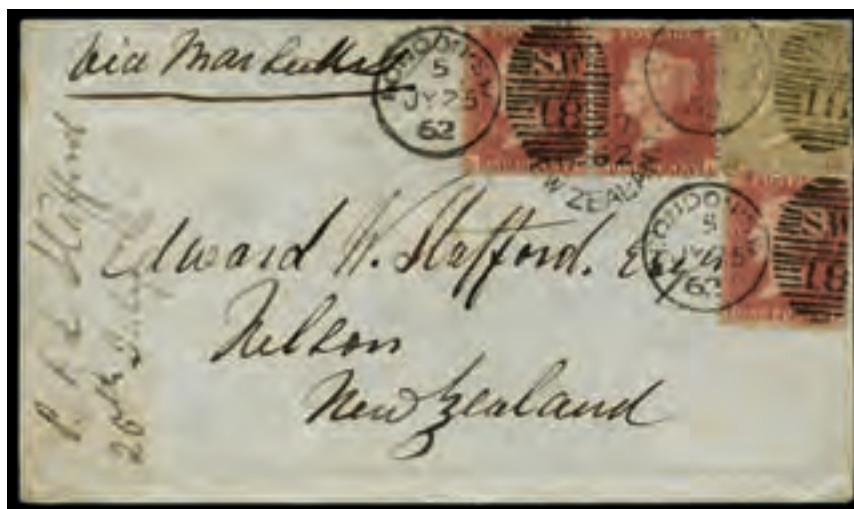 via Marseilles
LONDON SW
5
JY 25
62
SW
18
SW
18
18
NEW ZEALAN
LONDON SW
5
JY 25
62
SW
18
Edward W. Stafford. Esqre
Nelson
New Zealand
Stafford